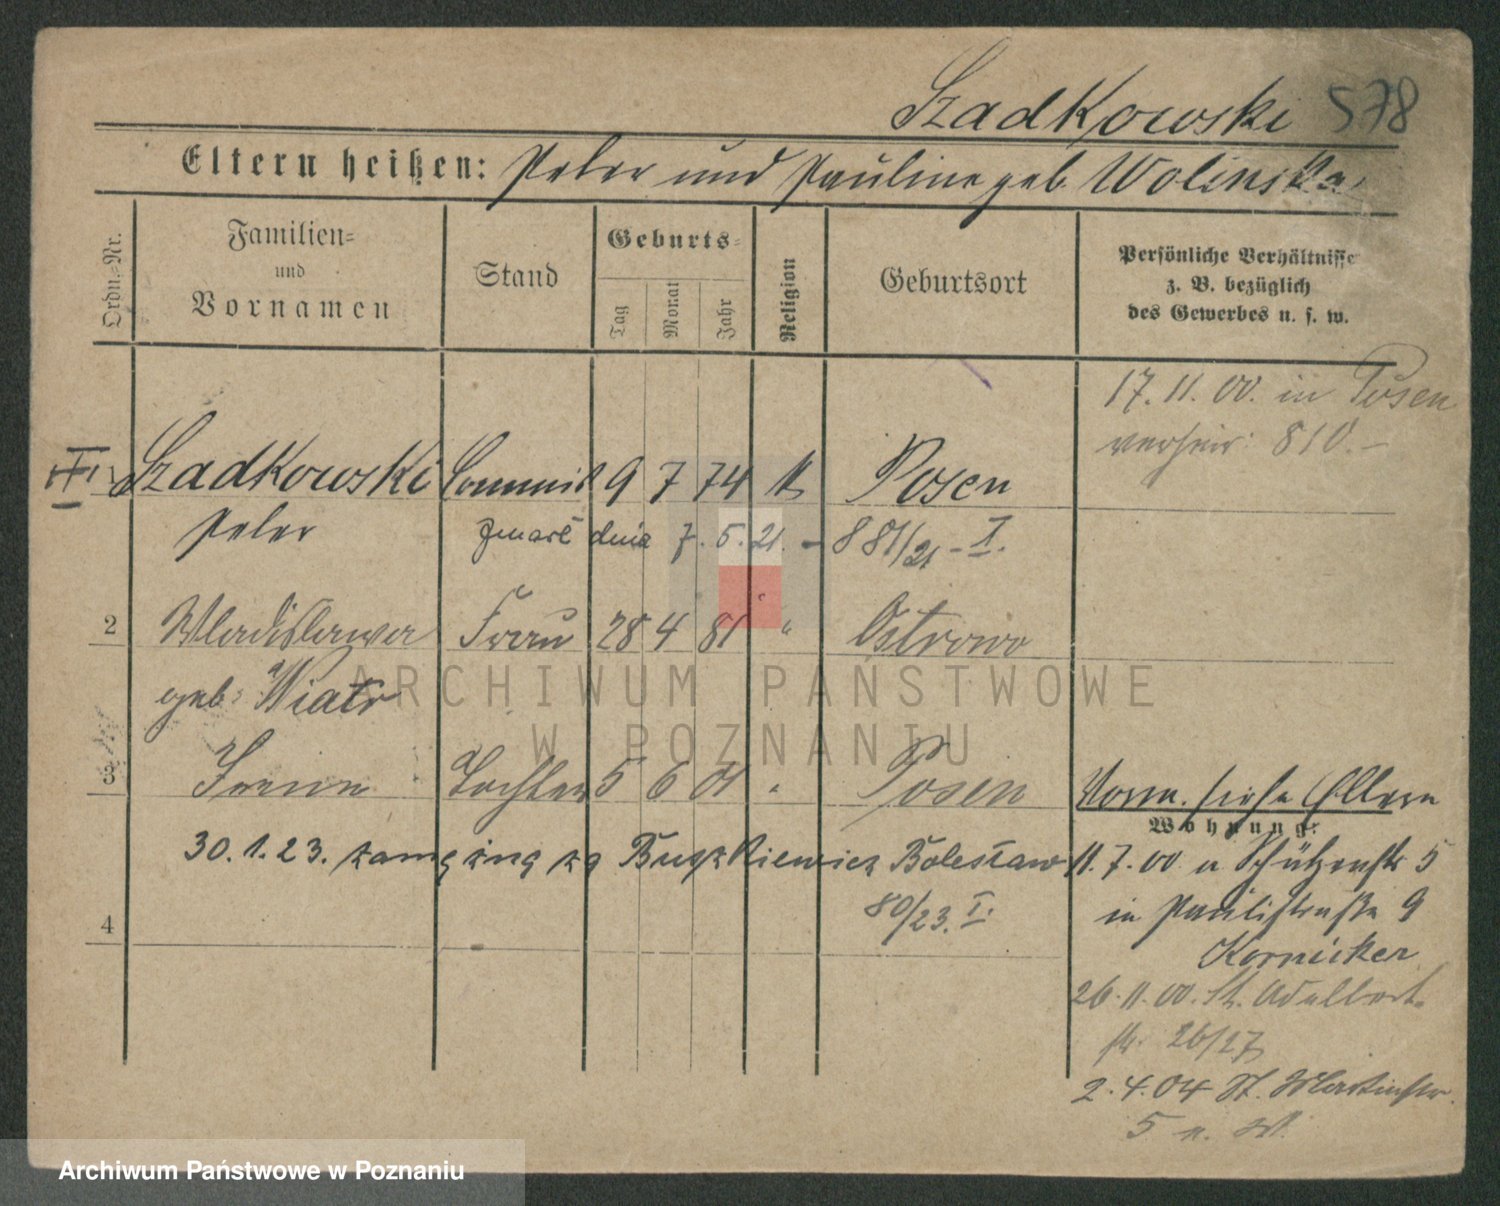 Szadkowski 578
Eltern heißen: Peter und Pauline geb. Wolinska
Ordn.-Nr.
Familien-
und
Vornamen
Stand
Geburts-
Tag
Monat
Jahr
Religion
Geburtsort
Persönliche Verhältnisse
z. B. bezüglich
des Gewerbes u. s. w.
17. 11. 00. in Posen
verheir: 810.-
Szadkowski Commis 9 7 74 k Posen
Peter
zmarł dnia 7. 5. 21. - 881/21 - I.
2 Wladislawa Frau 28 4 81 " Ostrowo
geb. Wiatr
3 Irene Tochter 5 6 01 " Posen
Vorm. siehe Eltern
Wohnung:
30. 1. 23. zamężną za Buszkiewicz Bolesław
80/23. I.
4
11. 7. 00 u Schützenstr 5
in Paulistraße 9
Kornicker
26. 11. 00. St. Adalbert-
str. 26/27
2. 4. 04 St. Martinstr.
5
ARCHIWUM PAŃSTWOWE
W POZNANIU
Archiwum Państwowe w Poznaniu